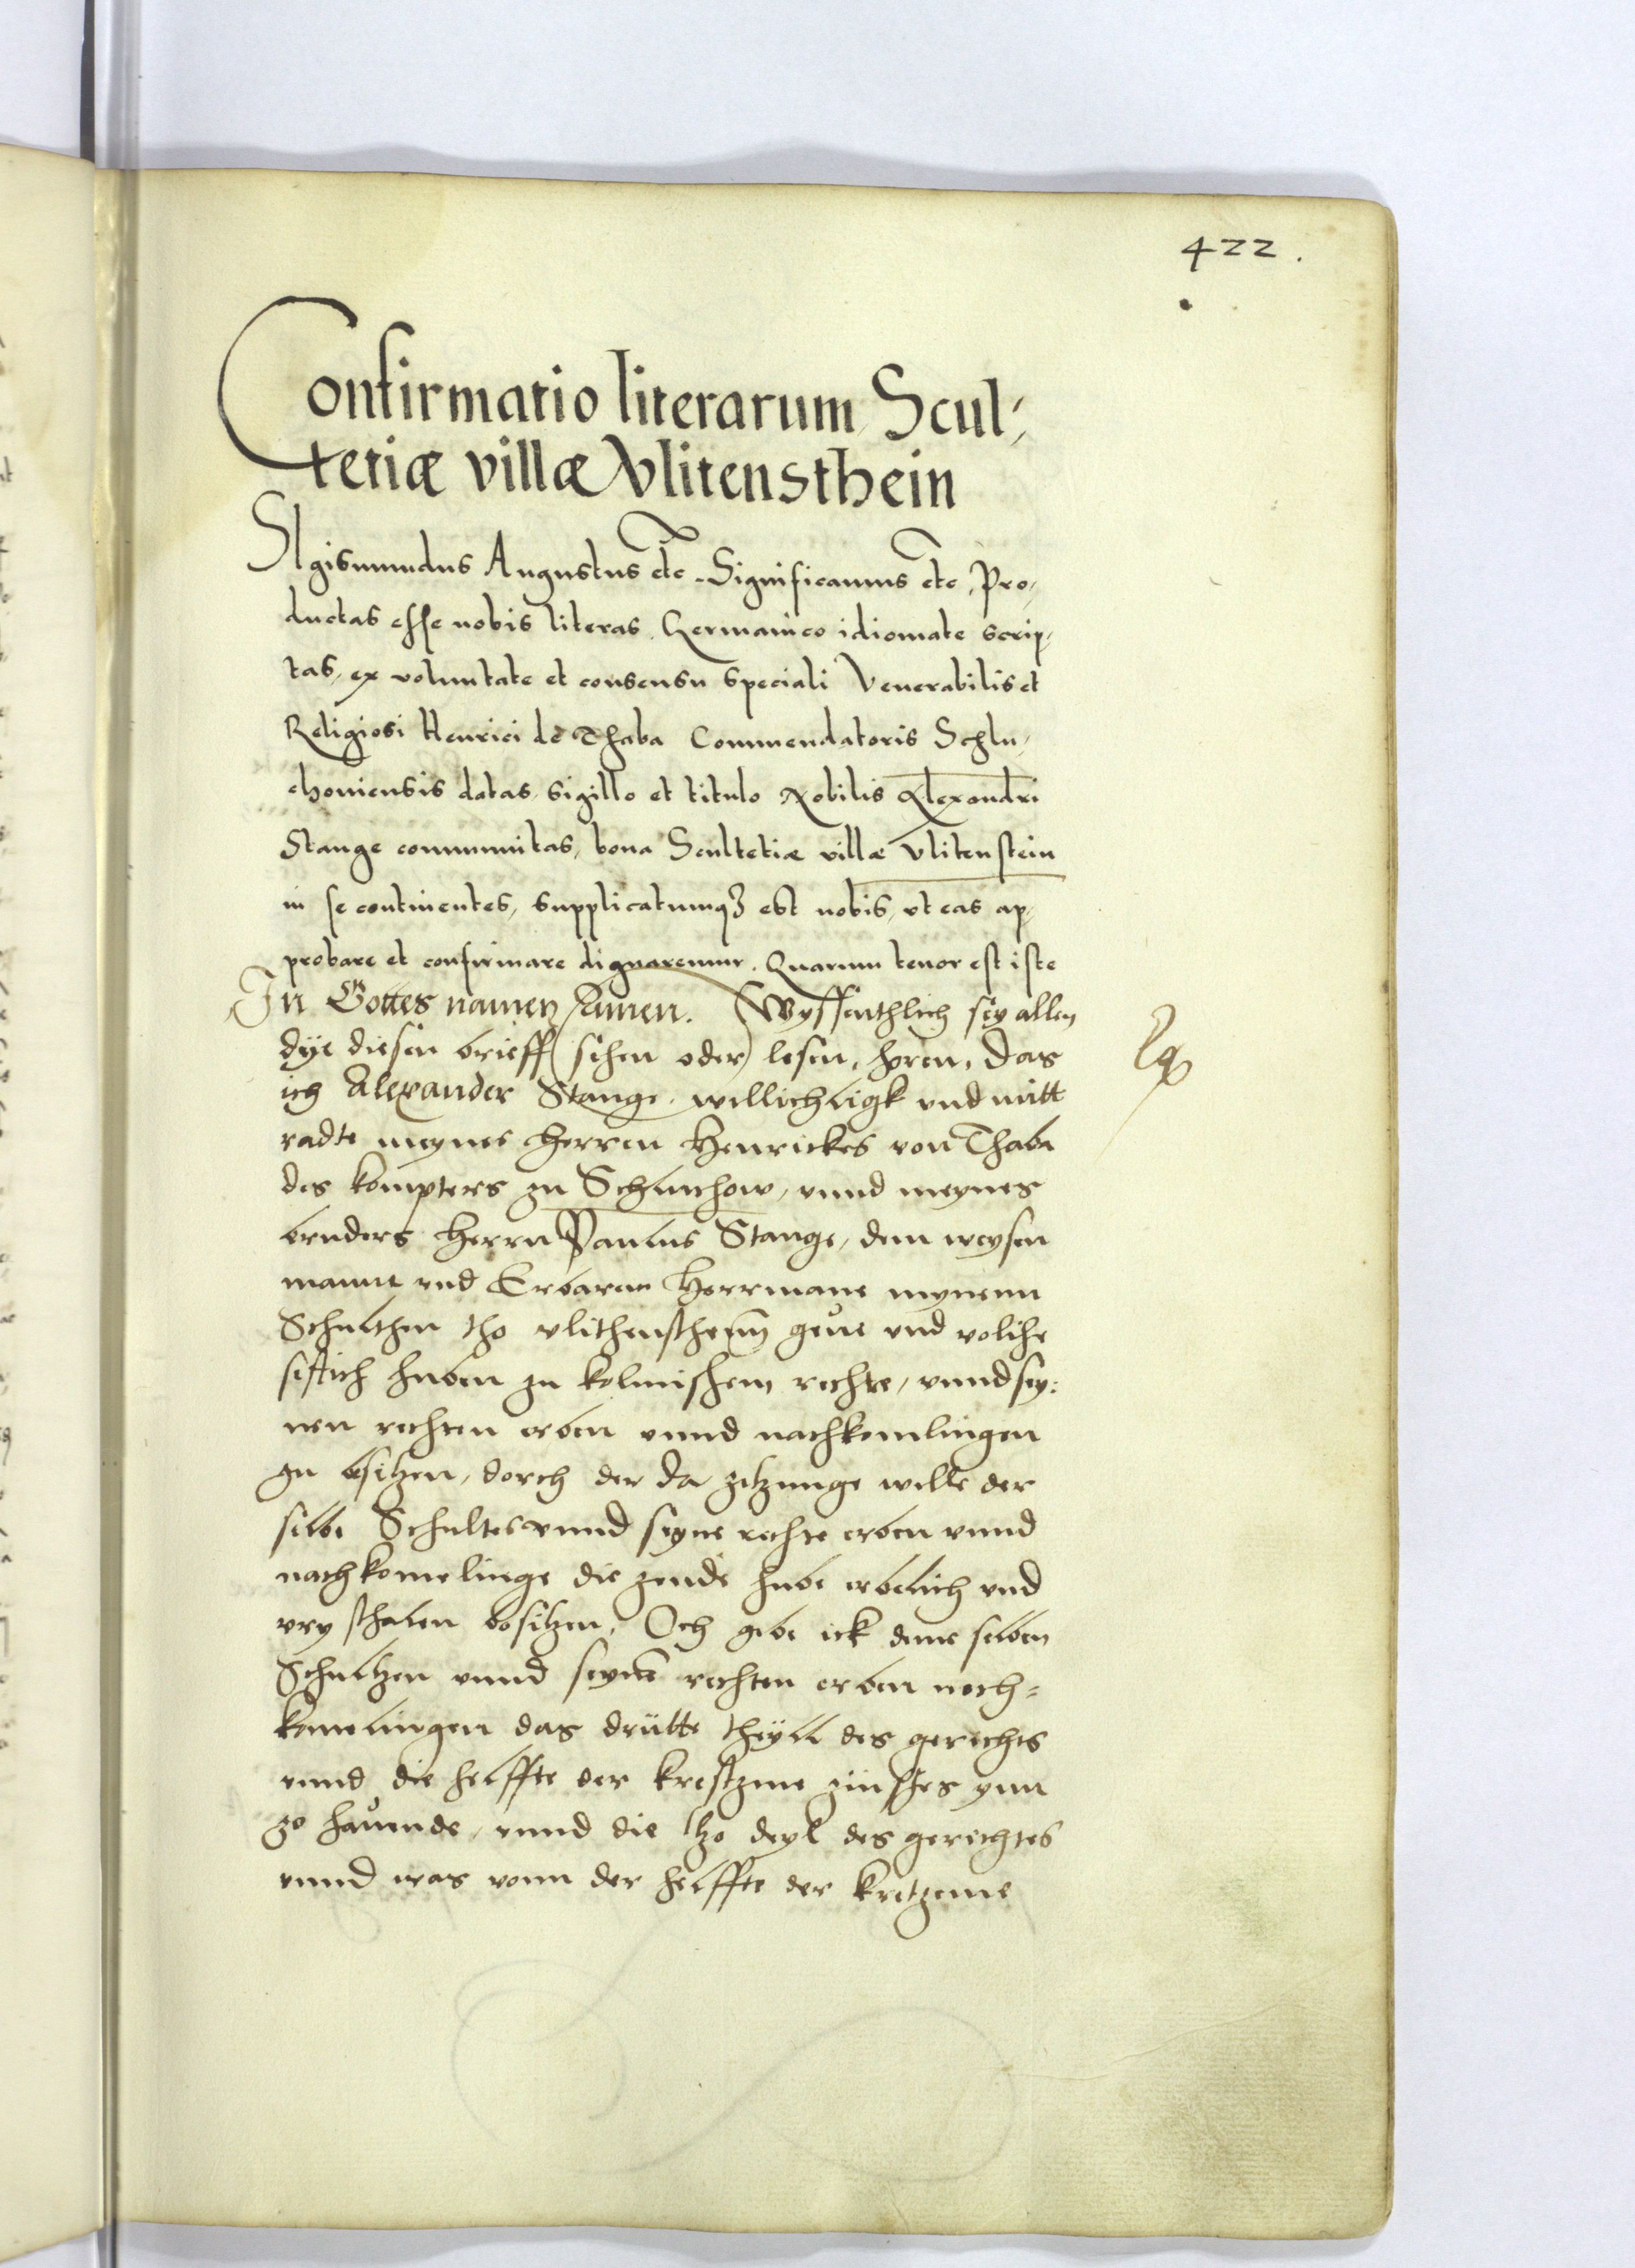 422.
Confirmatio literarum Scul-
tetiæ villæ Vlitensthein
SIgismundus Augustus etc. Significamus etc. Pro-
ductas esse nobis literas Germanico idiomate scrip-
tas, ex voluntate et consensu speciali Venerabilis et
Religiosi Henrici de Thaba Commendatoris Schlu-
choviensis datas, sigillo et titulo Nobilis Alexandri
Stange communitas, bona Scultetiæ villæ Vlitenstein
in se continentes, supplicatumqȝ est nobis, vt eas ap-
probare et confirmare dignaremur. Quarum tenor est iste
In Gottes namen Amen. Wyssenthlich sey allen
dye diesen brieff sehen oder lesen, horen, das
ich Alexander Stange willichligk vnd mitt
radte meynes herren Henrickes von Thaba
des kompters zu Schluchow, vnnd meynes
bruders Herrn Paulus Stange, dem weysen
manne vnd Erbaren Herrmane mynenn
Schulthen tho vlithensthein geue vnd volihe
sestich huben zu kolmischem rechte, vnnd sey:
nen rechten erben vnnd nachkomlingen
zu besitzen, dorch der da zetzunge wille der
selbe Schultes vnnd seyne rechte erben vnnd
nachkomelinge die zende hube erbelich vnd
vry schalen besitzen, Och gebe ick deme selben
Schultzen vnnd seynen rechten erben noch=
komelingen das drütte theyll des gerichts
vnnd die helffte der kreszme zinsses ynn
zo hauende, vnnd die tzo deyl des gerichtes
vnnd was vonn der helffte der kretzeme